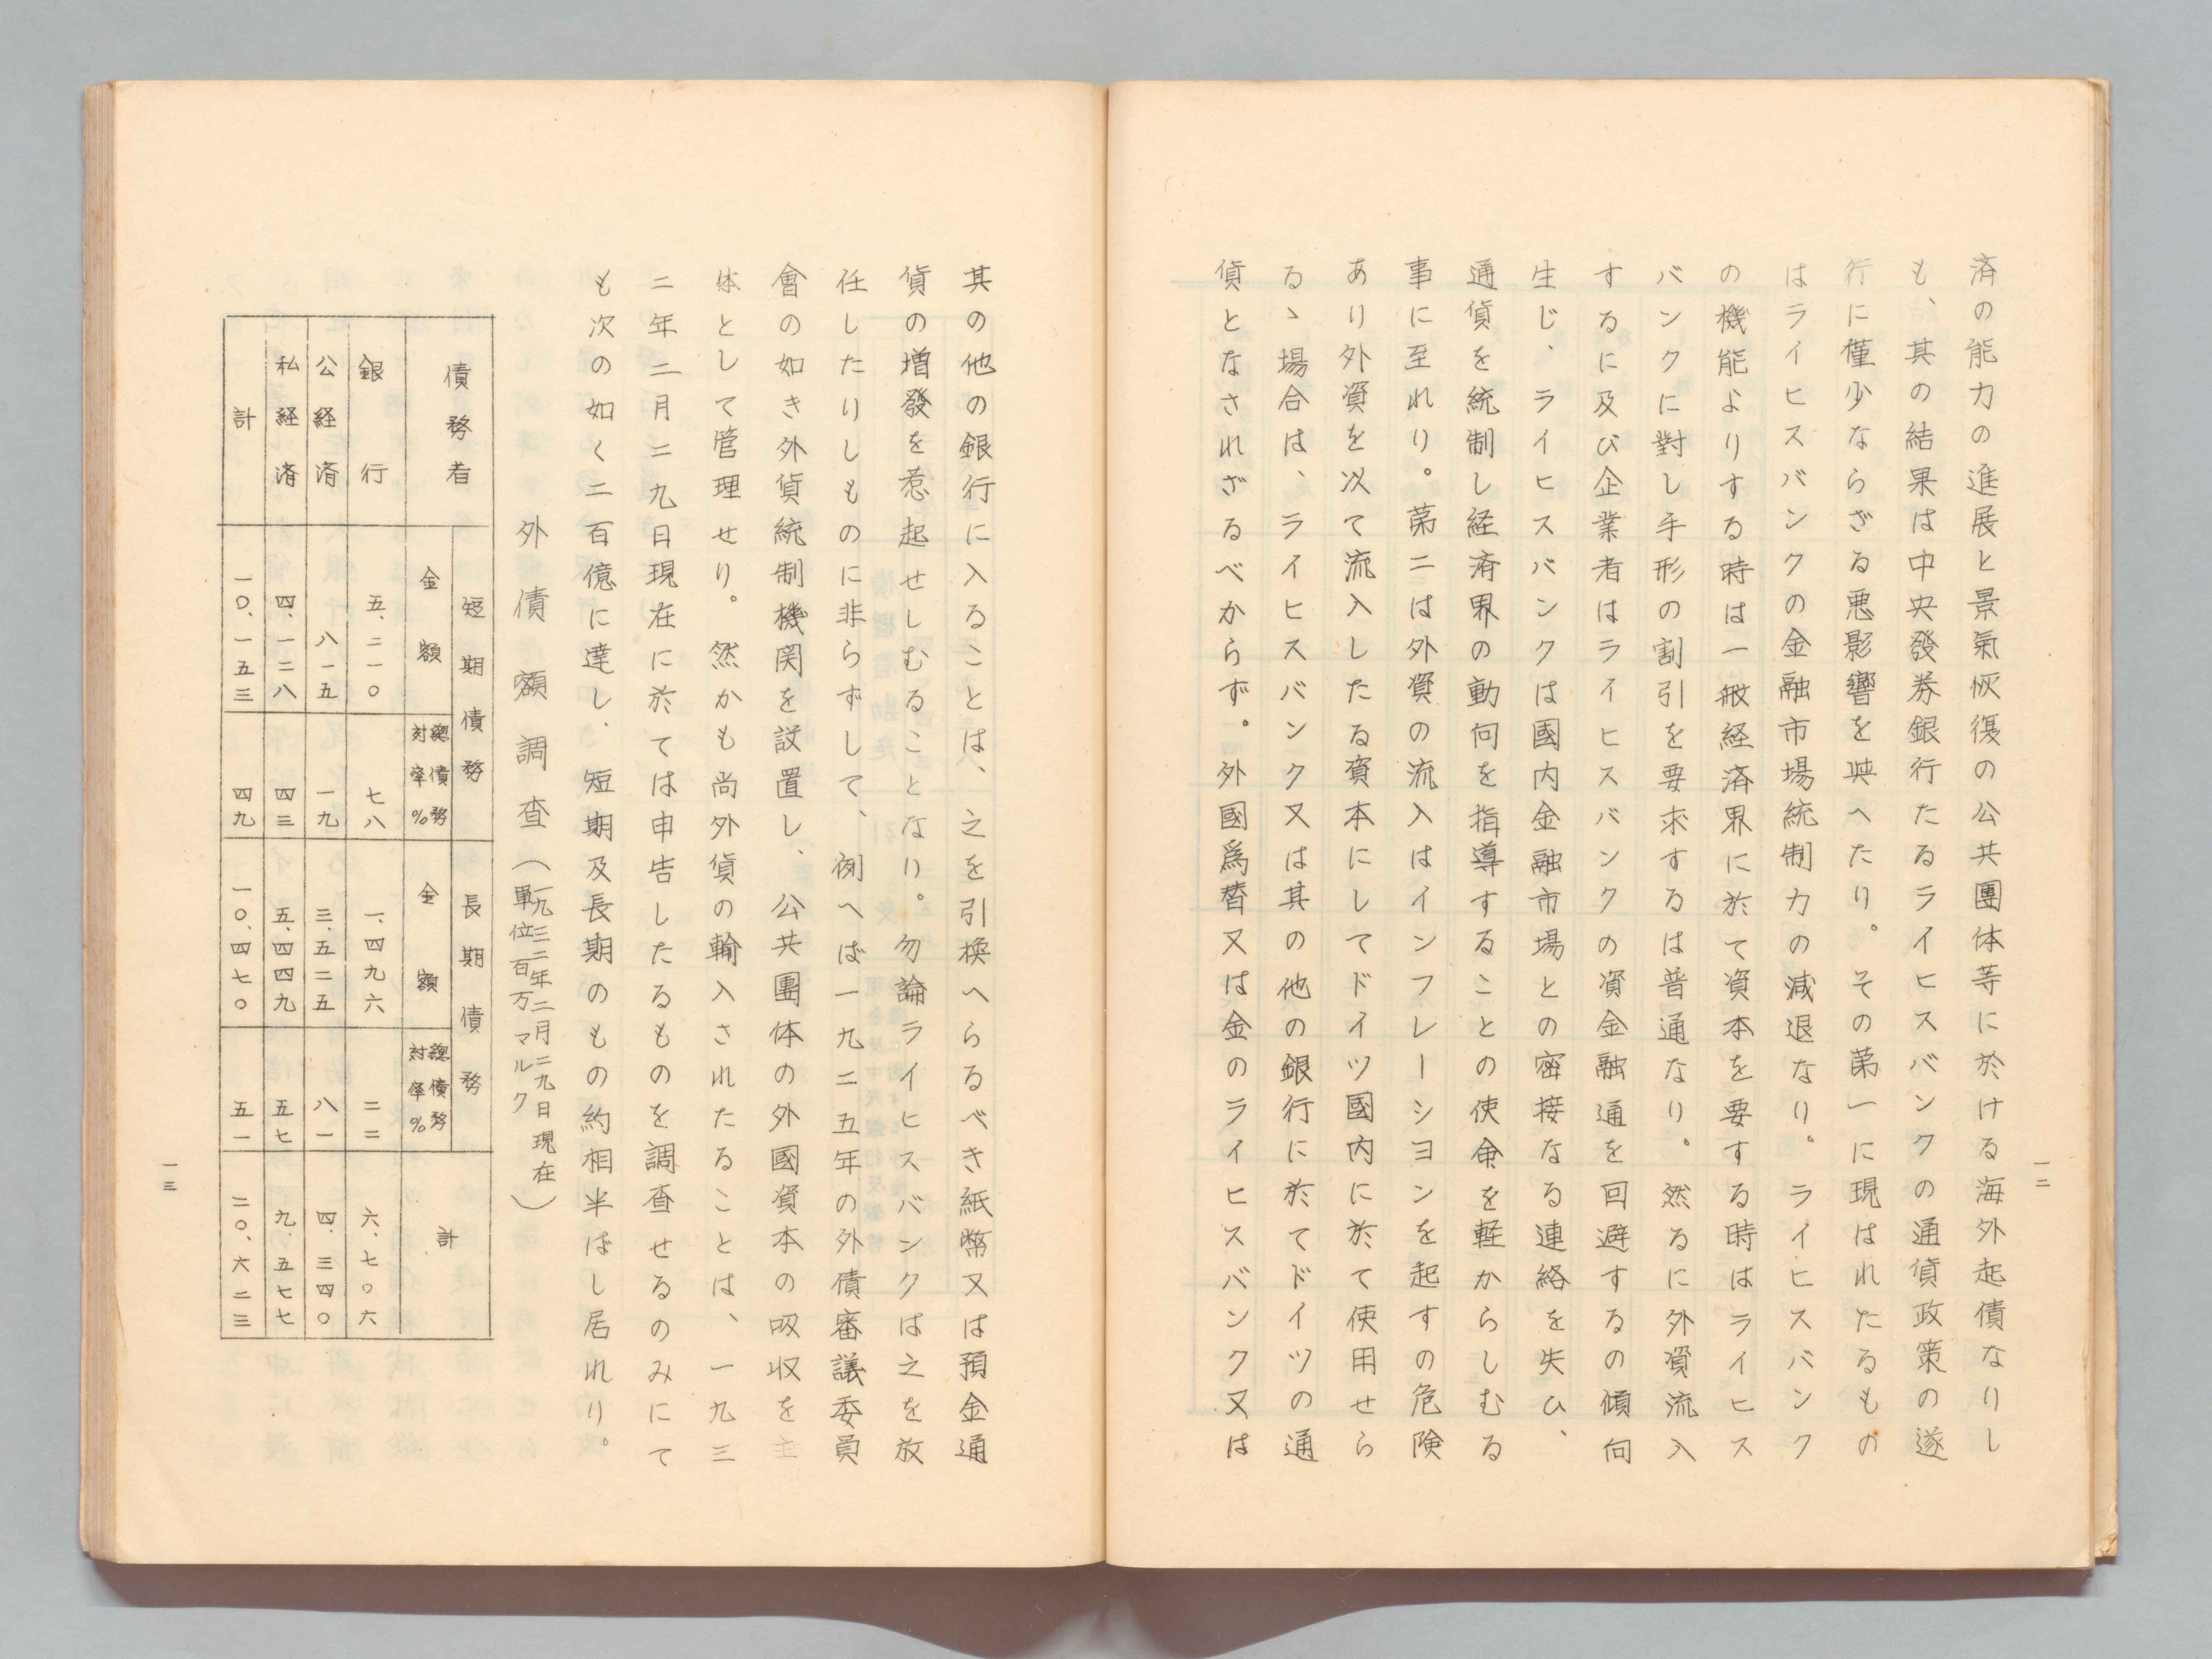 済の能力の進展と景氣恢復の公共團体等に於ける海外起債なりし
も、其の結果は中央發券銀行たるライヒスバンクの通貨政策の遂
行に僅少ならざる悪影響を與へたり。その第一に現はれたるもの
はライヒスバンクの金融市場統制力の減退なり。ライヒスバンク
の機能よりする時は一般経済界に於て資本を要する時はライヒス
バンクに對し手形の割引を要求するは普通なり。然るに外資流入
するに及び企業者はライヒスバンクの資金融通を回避するの傾向
生じ、ライヒスバンクは國内金融市場との密接なる連絡を失ひ、
通貨を統制し経済界の動向を指導することの使命を軽からしむる
事に至れり。第二は外資の流入はインフレーシヨンを起すの危険
あり外資を以て流入したる資本にしてドイツ國内に於て使用せら
るゝ場合は、ライヒスバンク又は其の他の銀行に於てドイツの通
貨となされざるべからず。外國爲替又は金のライヒスバンク又は
一二
其の他の銀行に入ることは、之を引換へらるべき紙幣又は預金通
貨の増發を惹起せしむることなり。勿論ライヒスバンクは之を放
任したりしものに非らずして、例へば一九二五年の外債審議委員
會の如き外貨統制機関を設置し、公共團体の外國資本の吸収を主
体として管理せり。然かも尚外貨の輸入されたることは、一九三
二年二月二九日現在に於ては申告したるものを調査せるのみにて
も次の如く二百億に達し、短期及長期のもの約相半ばし居れり。
外債額調査（一九三二年二月二九日現在
單位百万マルク）
債務者 短期債務 長期債務 計
金額 總債務対率% 金額 總債務対率%
銀行 五、二一〇 七八 一、四九六 二二 六、七〇六
公経済 八一五 一九 三、五二五 八一 四、三四〇
私経済 四、一二八 四三 五、四四九 五七 九、五七七
計 一〇、一五三 四九 一〇、四七〇 五一 二〇、六二三
一三